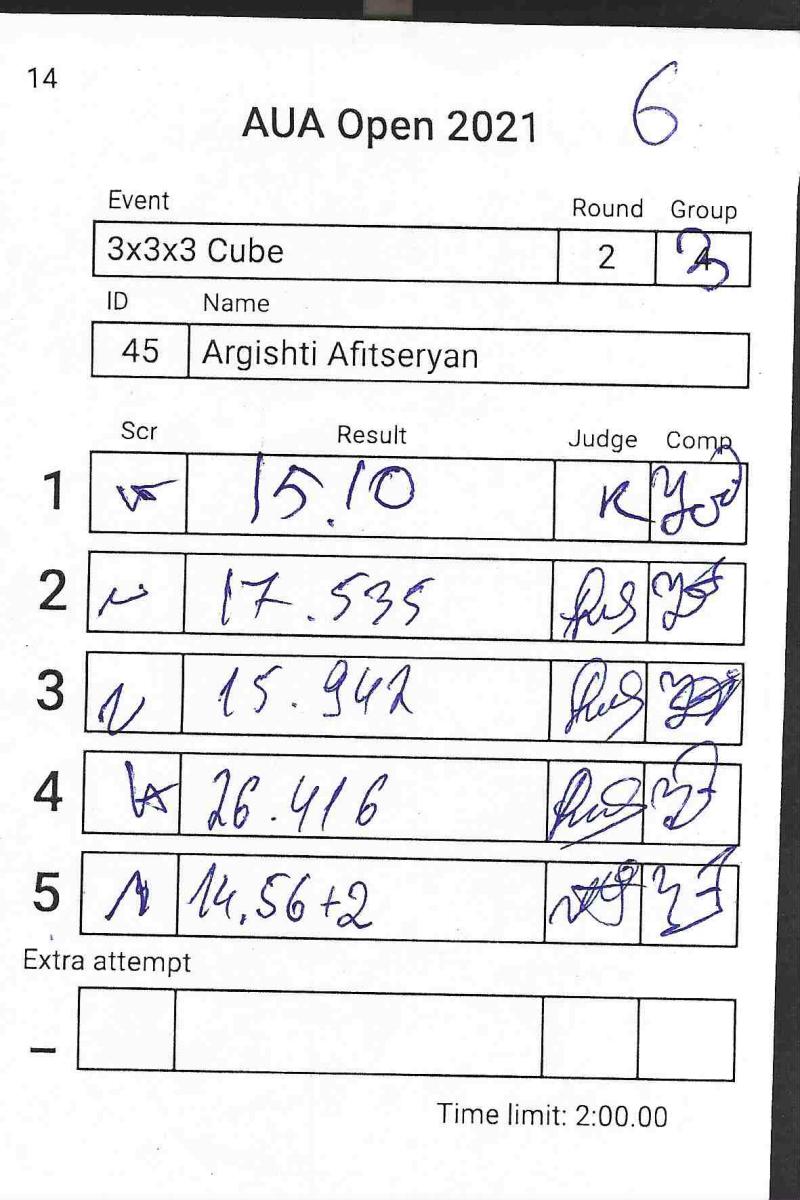 14
6
AUA Open 2021
Event Round Group
3x3x3 Cube 2 3
ID Name
45 Argishti Afitseryan
Scr Result Judge Comp
1 15.10 K
2 17.535
3 15.942
4 26.416
5 14.56+2
Extra attempt
_
Time limit: 2:00.00